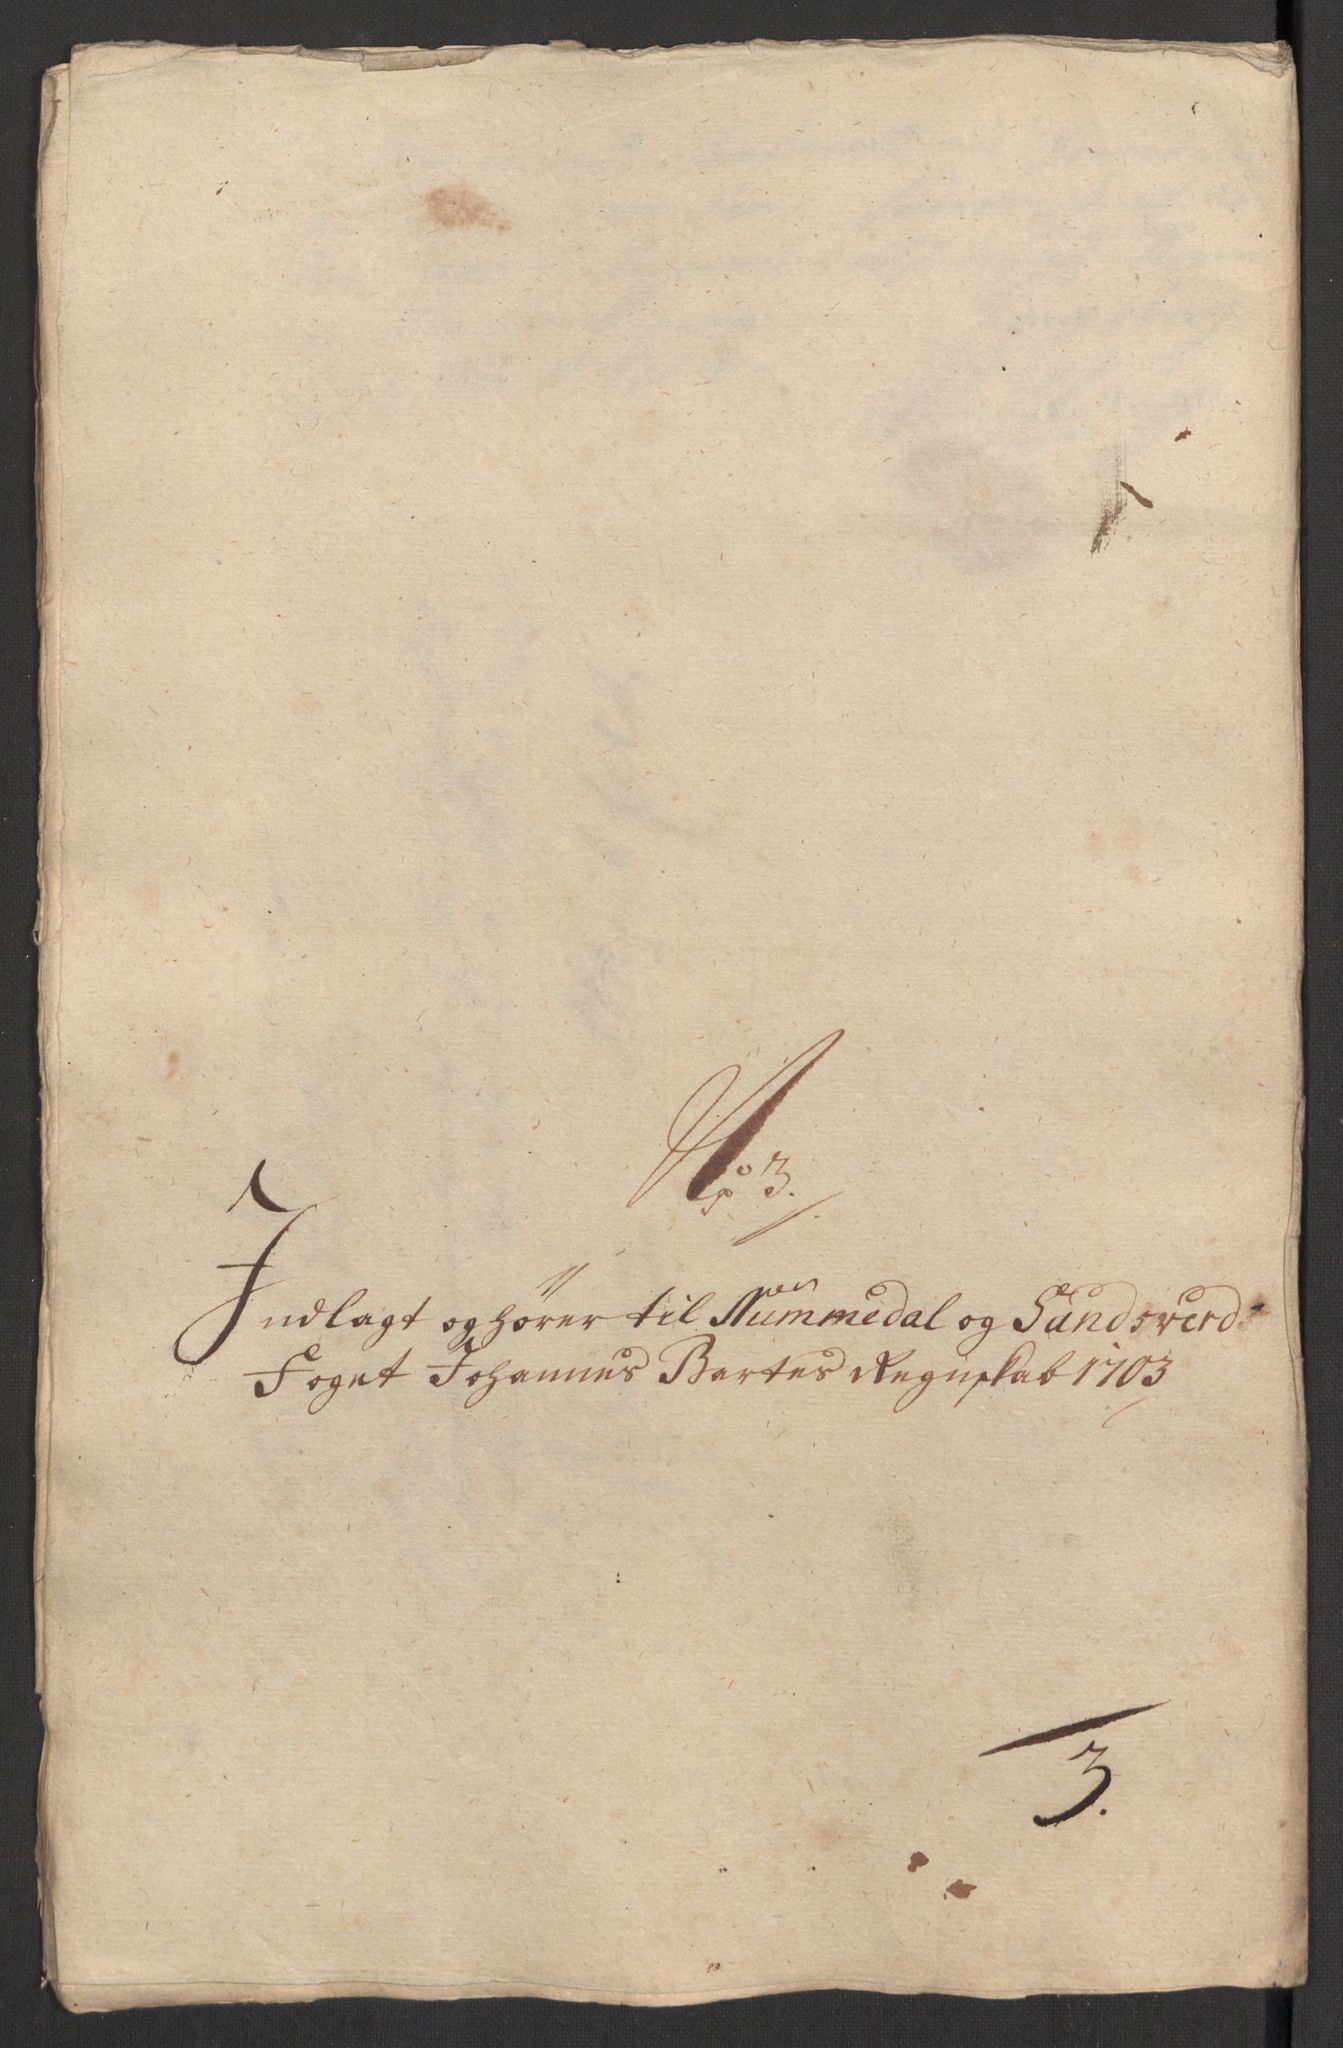 No 3.
Indlagt og hører til Nummedal og Sandsverd
Foget Johannes Bartes Regnskab 1703
3.